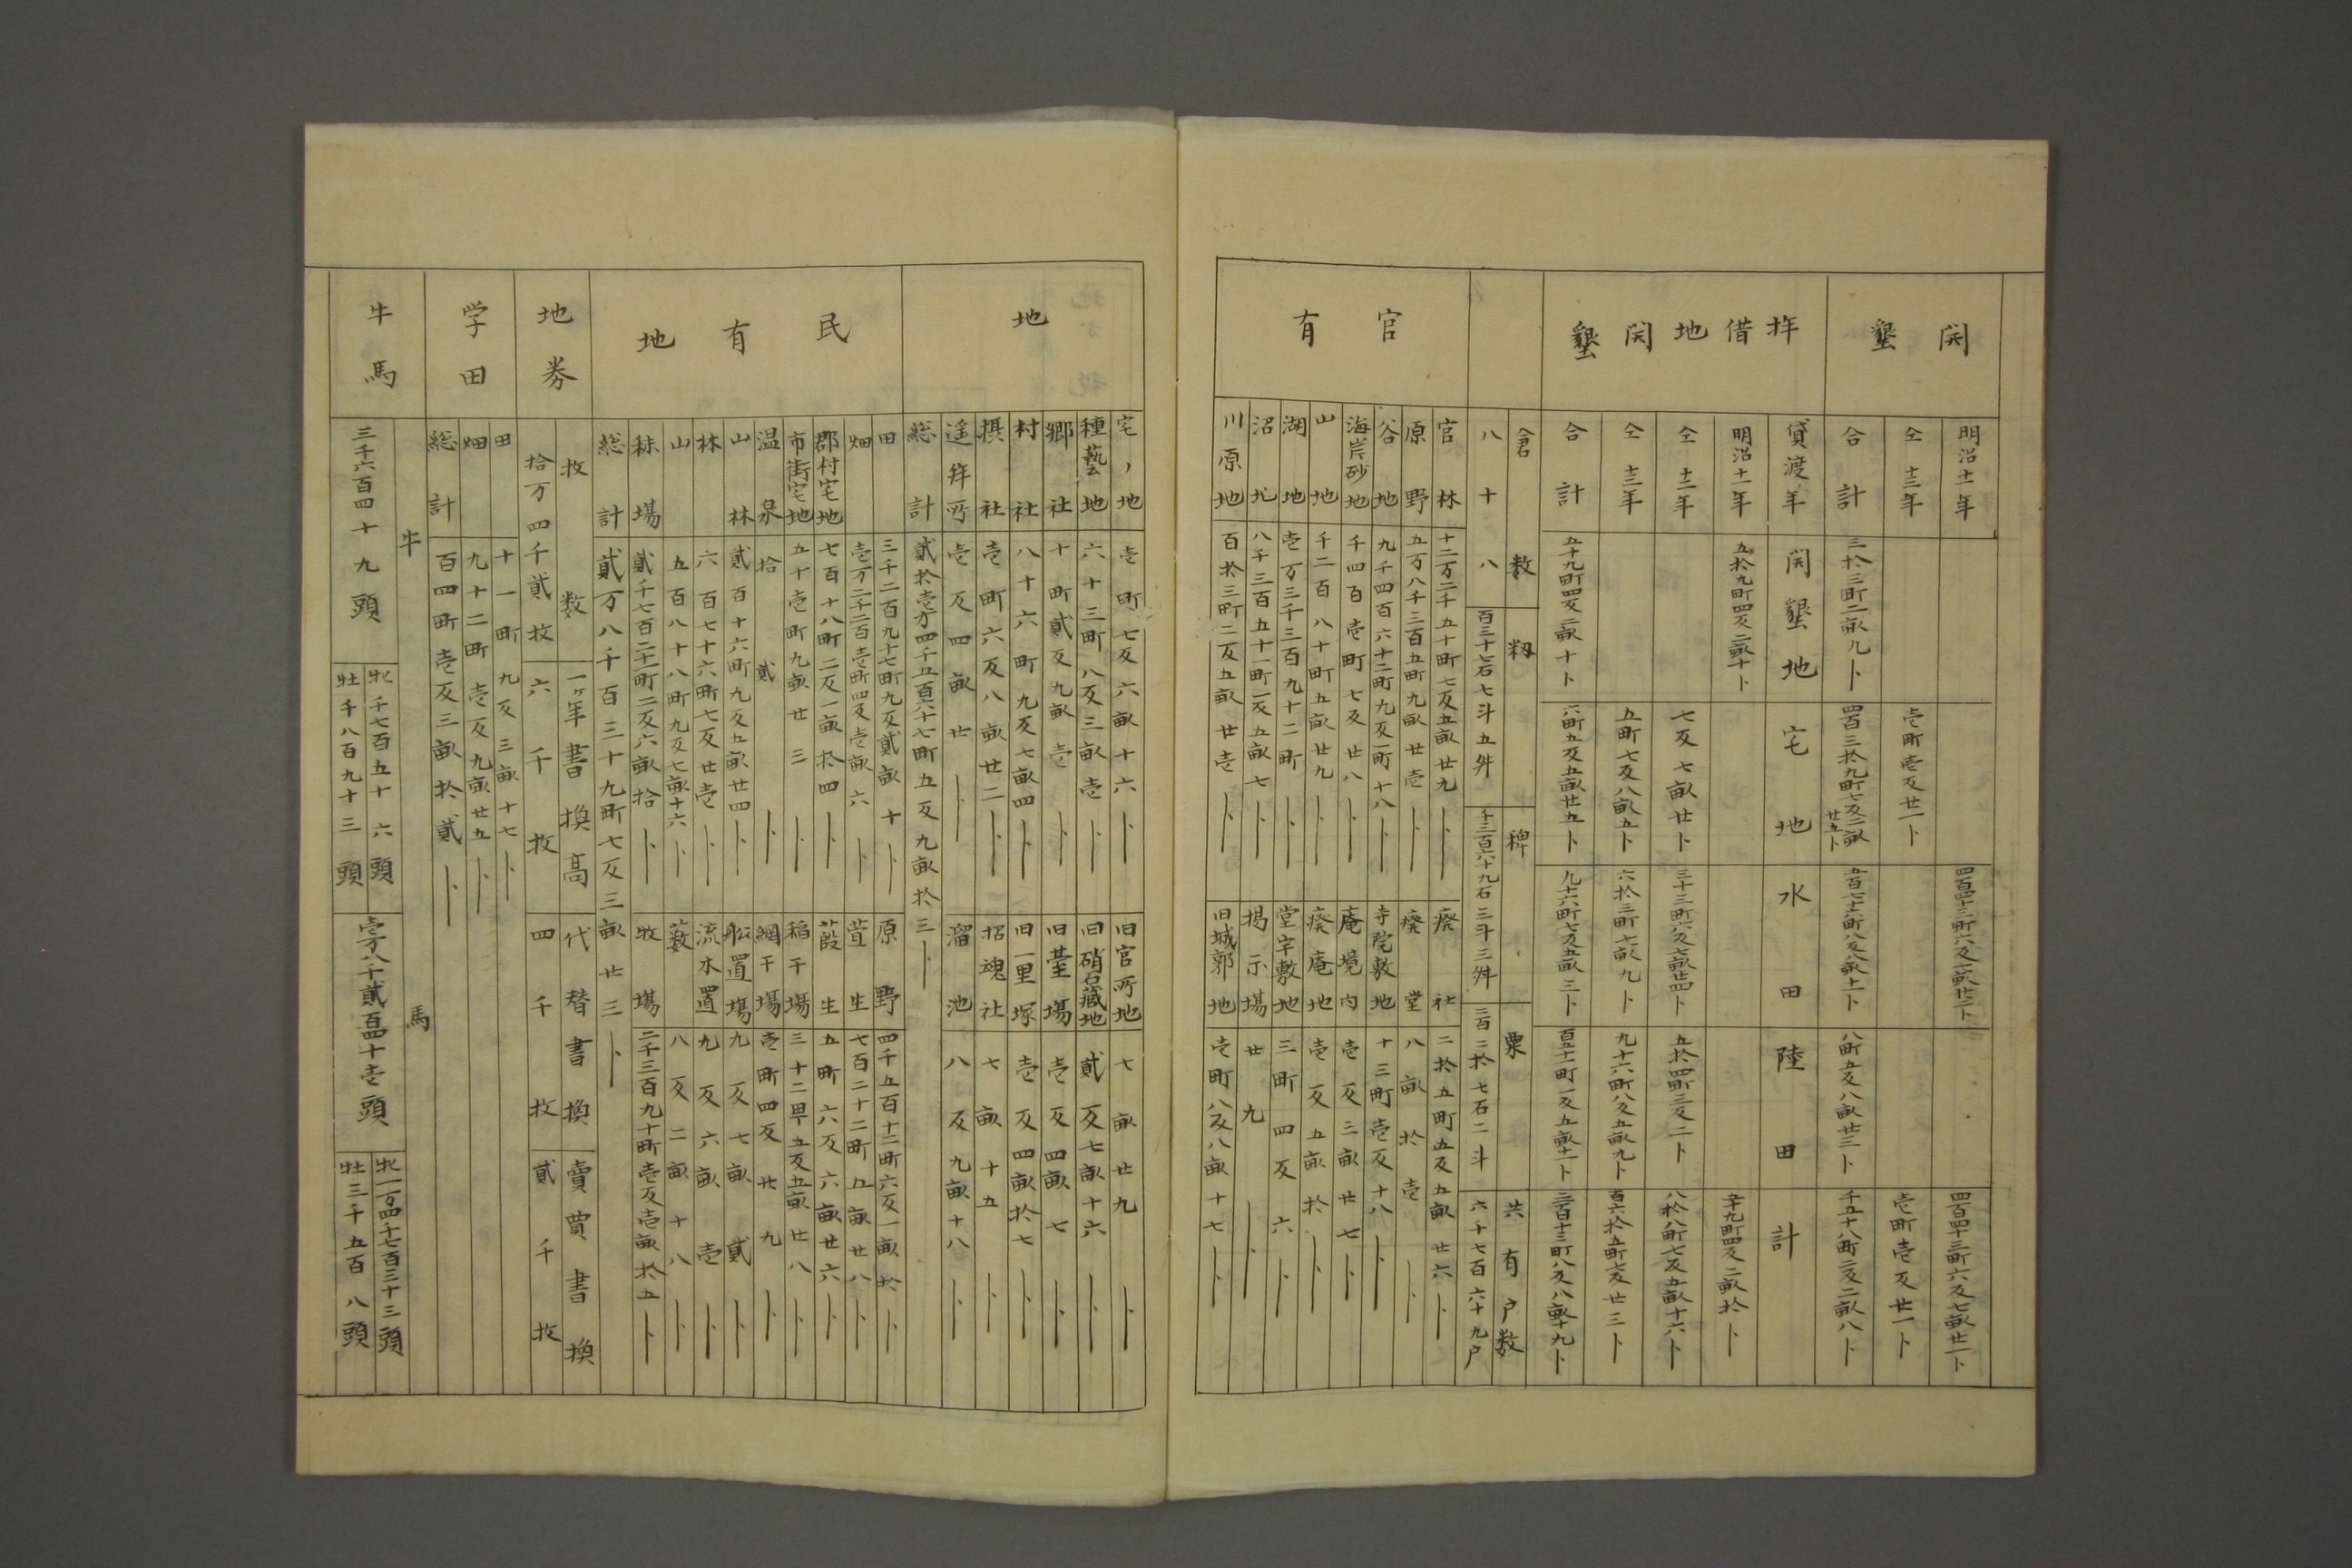 開墾
明治十一年
四百四十三町六反七畝廿二卜
四百四十三町六反七畝廿二卜
仝十三年
壱町壱反廿一卜
壱町壱反廿一卜
合計
三拾三町二畝九卜
四百三拾九町七反二畝廿五卜
五百七十六町八反八畝十一卜
八町五反八畝廿三卜
千五十八町二反二畝八卜
拝借地開墾
貸渡年
開墾地
宅地
水田
陸田
計
明治十一年
五拾九町四反二畝十卜
五十九町四反二畝拾卜
仝十二年
七反七畝廿卜
三十三町六反七畝廿四卜
五拾四町三反二卜
八拾八町七反五畝十六卜
仝十三年
五町七反八畝五卜
六拾三町七畝九卜
九十六町八反五畝九卜
百六拾五町七反廿三卜
合計
五十九町四反二畝十卜
六町五反五畝廿五卜
九十六町七反五畝三卜
百五十一町一反五畝十一卜
三百十三町八反八畝十九卜
倉数
籾
稗
粟
共有戸数
八十八
百三十七石七斗五舛
千三百六十九石三斗三舛
三百二拾七石二斗
六千七百六十九戸
官有
官林
十二万二千五十町七反五畝廿九卜
廃社
二拾五町五反五畝廿六卜
原野
五万八千三百五町九畝廿壱卜
廃堂
八畝拾壱卜
谷地
九千四百六十二町九反一町十八卜
寺院敷地
十三町壱反十八卜
海岸砂地
千四百壱町七反廿八卜
庵境内
壱反三畝廿七卜
山地
千二百八十町五畝廿九卜
廃庵地
壱反五畝拾卜
湖地
壱万三千三百九十二町卜
堂宇敷地
三町四反六卜
沼地
八千三百五十一町一反五畝七卜
掲示場
廿九卜
川原地
百拾三町二反五畝廿壱卜
旧城郭地
壱町八反八畝十七卜
地
宅地
壱町七反六畝十六卜
旧官所地
七畝廿九卜
種藝地
六十三町八反三畝壱卜
旧硝石蔵地
貳反七畝十六卜
郷社
十町貳反九畝壱卜
旧臺場
壱反四畝七卜
村社
八十六町九反七畝四卜
旧一里塚
壱反四畝拾七卜
摂社
壱町六反八畝廿二卜
招魂社
七畝十五卜
遥拝所
壱反四畝廿卜
溜池
八反九畝十八卜
総計
貳拾壱万四千五百六十七町五反九畝拾三卜
民有地
田
三千二百九十七町九反貳畝十卜
原野
四千五百十二町六反一畝拾卜
畑
壱万二千二百壱町四反壱畝六卜
萓生
七百二十二町五畝廿八卜
郡村宅地
七百十八町二反一畝拾四卜
葭生
五町六反六畝廿六卜
市街宅地
五十壱町九畝廿三卜
稲干場
三十二町五反五畝廿八卜
温泉
拾貳卜
網干場
壱町四反廿九卜
山林
貳百十六町九反五畝廿四卜
船置場
九反七畝貳卜
林
六百七十六町七反廿壱卜
流木置
九反六畝壱卜
山
五百八十八町九反七畝十六卜
藪
八反二畝十八卜
秣場
貳千七百二十一町二反六畝拾卜
牧場
二千三百九十町壱反壱畝拾五卜
総計
貳万八千百三十九町七反三畝廿三卜
地券
枚数
一ヶ年書換高
代替書換
賣買書換
拾万四千貳枚
六千枚
四千枚
貳千枚
学田
田
十一町九反三畝十七卜
畑
九十二町壱反九畝廿五卜
総計
百四町壱反三畝拾貳卜
牛馬
牛
馬
三千六百四十九頭
牝千七百五十六頭
牡千八百九十三頭
壱万八千貳百四十壱頭
牝一万四千七百三十三頭
牡三千五百八頭